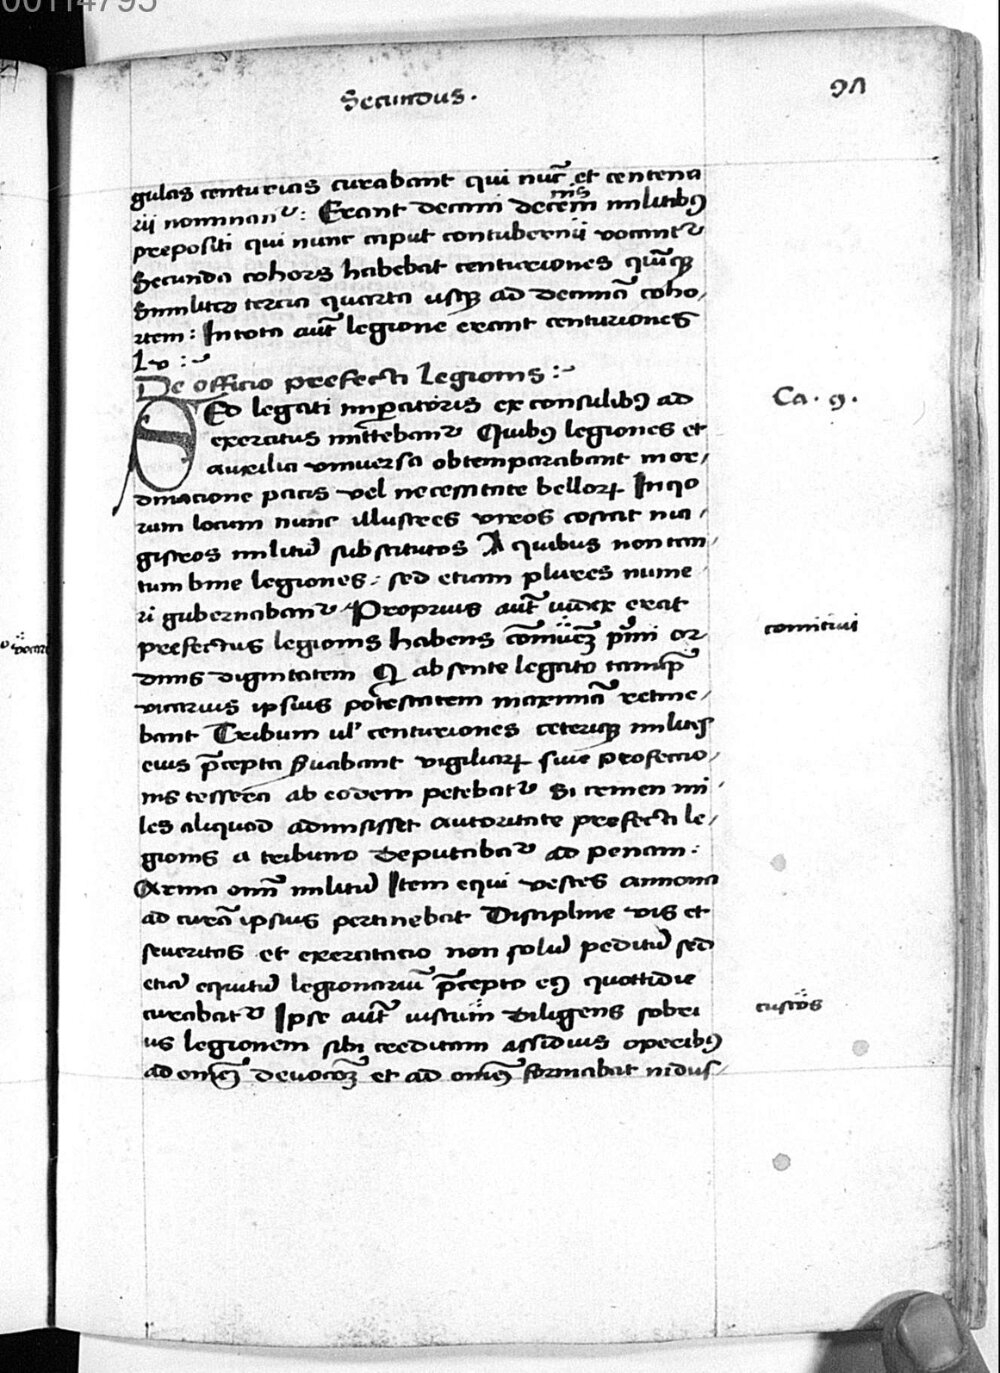 00114795
Secundus.
gulas centurias curabant qui nūc et centena
rii nominant᷑: Erant decani decem militibꝰ
nis
prepositi qui nunc caput contubernii vocant᷑
Secunda cohors habebat centuriones quīqꝫ
Similiter tercia quarta usqꝫ ad decimā coho/
rtem: In tota aūt legione erant centuriones
Lv :~
De officio prefecti Legionis :~
Ca. 9.
SEd legati imꝑatoris ex consulibꝰ ad
exercitus mittebant᷑ Quibꝰ legiones et
auxilia universa obtemperabant in or/
dinacione pacis vel necessitate belloꝝ In quo
rum locum nunc illustres viros constat ma/
gistros militū substitutos A quibus non tan/
tum bine legiones: sed etiam plures nume
ri gubernabant᷑ Proprius aūt iudex erat
prefectus legionis habens p̄mi or
comitiui
dinis dignitatem Q absente legato tamꝗ̄
vicarius ipsius potestatem maximā retine/
bant Tribuni ul' centuriones ceteriqꝫ milites
eius p̄cepta ẜuabant vigiliaꝝ sive profectio/
nis tessera ab eodem petebat᷑ Si temen mi/
les aliquod admisisset autoritate prefecti le/
gionis a tribuno deputabat᷑ ad penam:
Arma militū Item equi vestes annona
ad curā ipsius pertinebat Discipline vis et
severitas et exercitacio non solū peditū sed
etiā equitū legionariū p̄cepto eiꝰ quottidie
curabat᷑ Ipse aūt iustum diligens sobri
custos
us legionem sibi creditam assiduis operibꝰ
ad et ad formabat